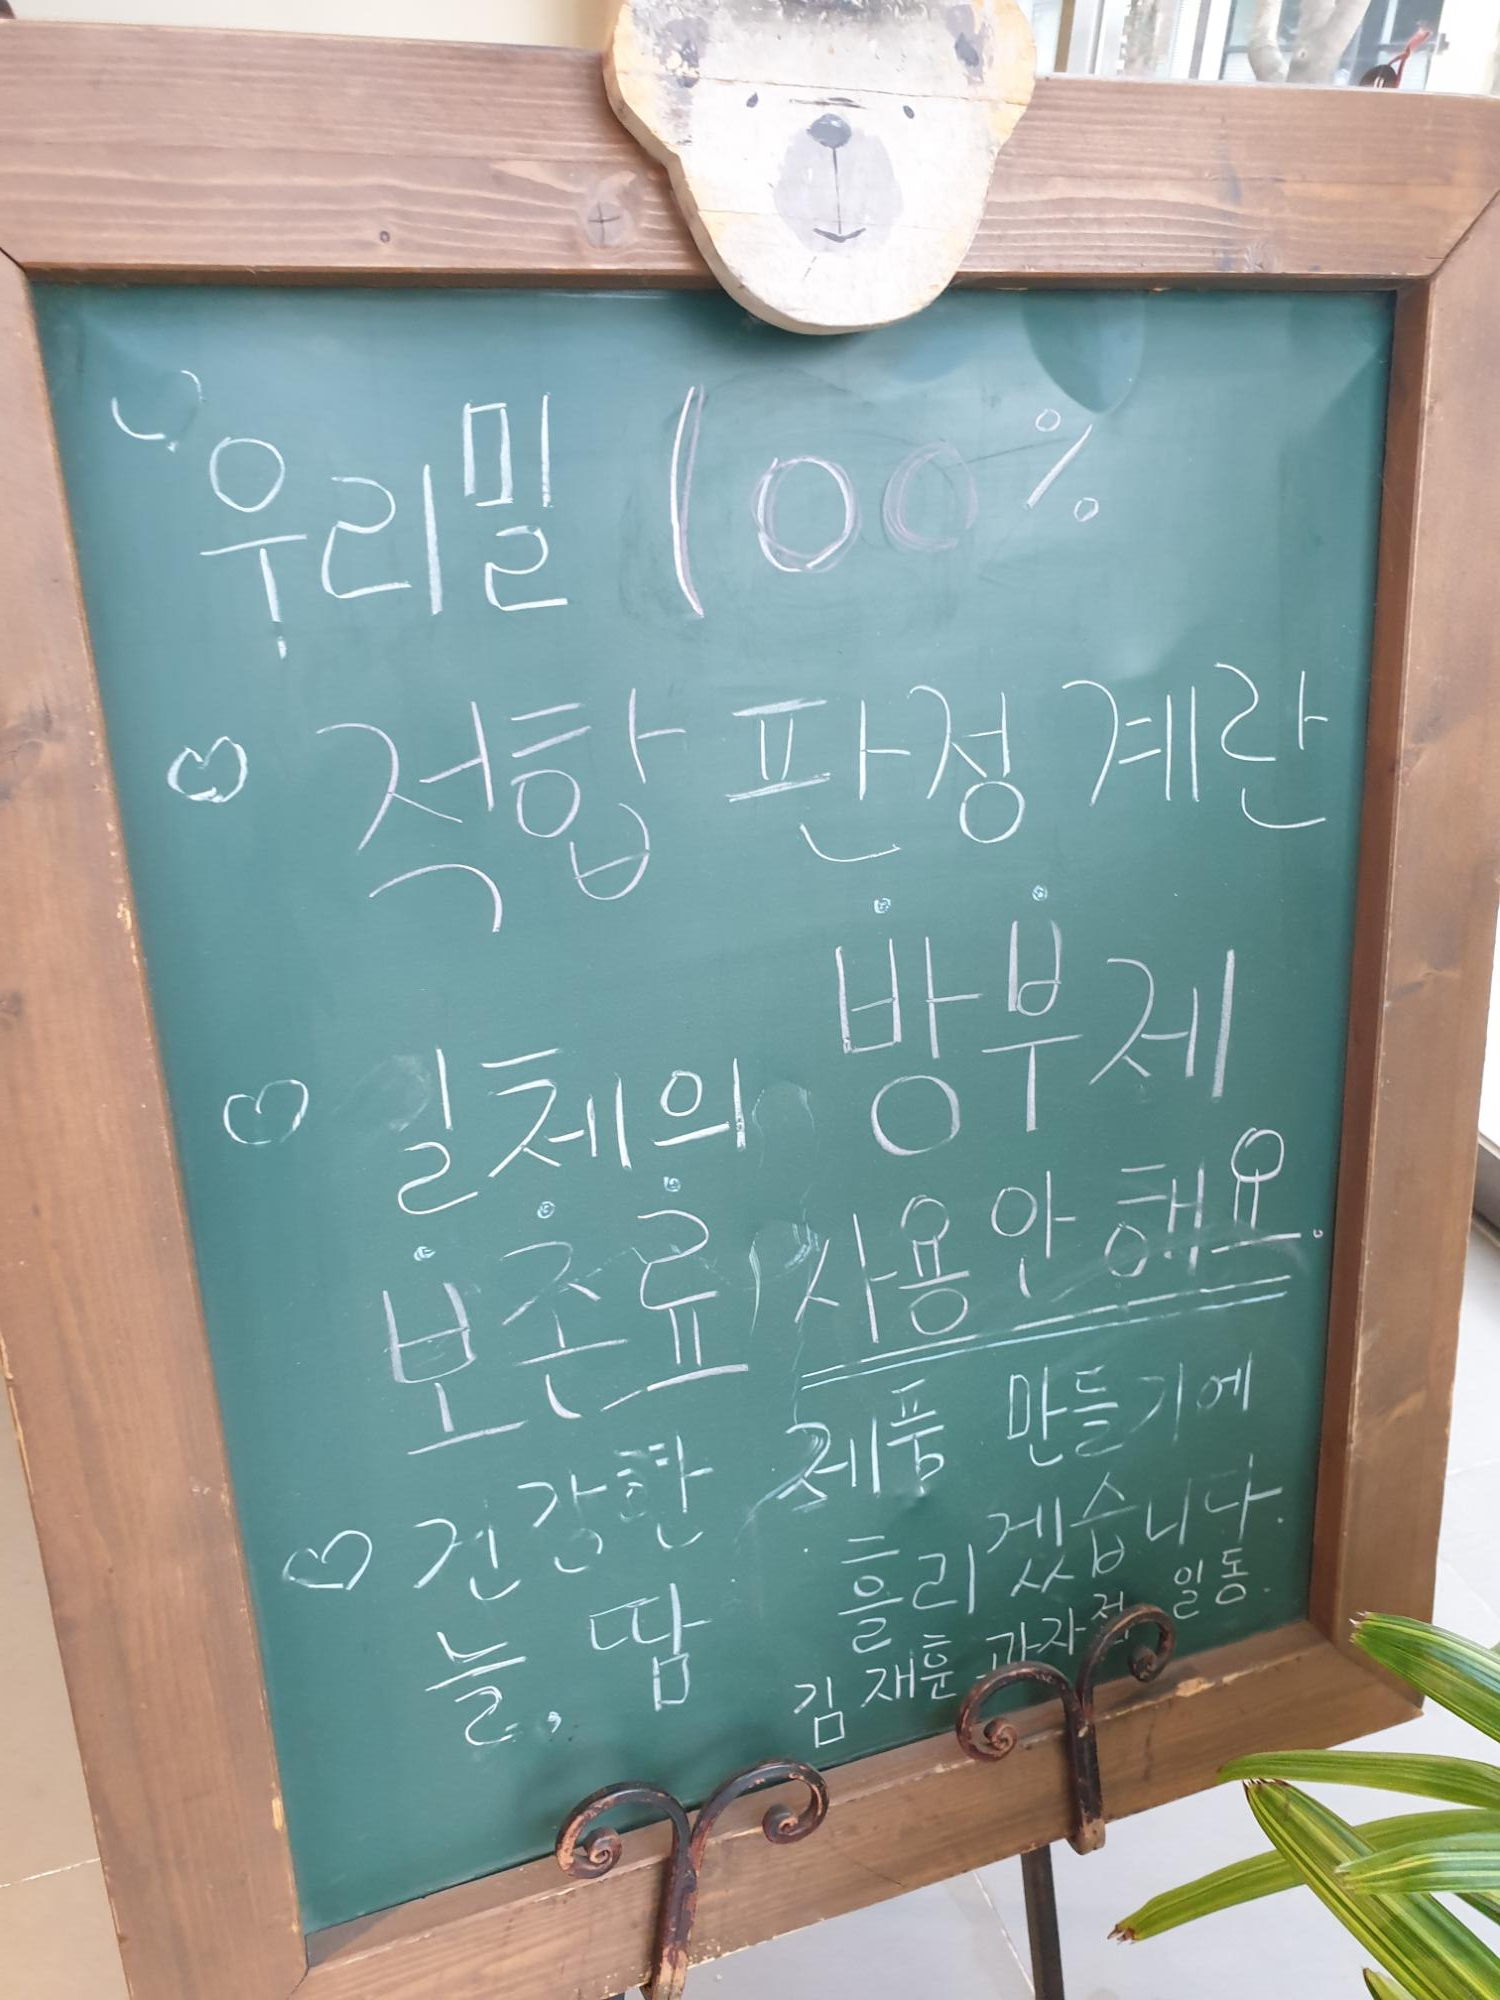 우리밀 100%
적합 판정 계란
일체의 방부제
보존료 사용 안 해요.
건강한 제품 만들기에
늘, 땀 흘리겠습니다.
김재훈 과자점 일동.